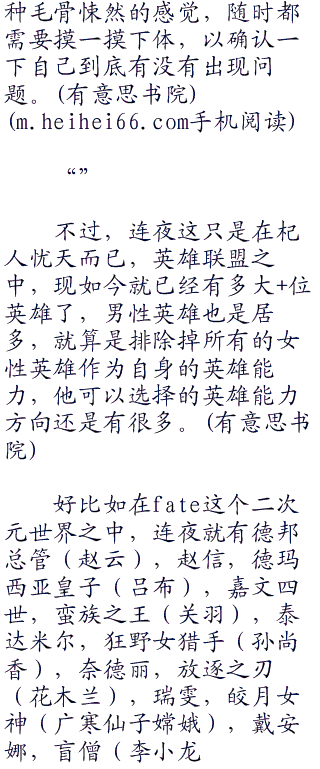 种毛骨悚然的感觉，随时都
需要摸一摸下体，以确认一
下自己到底有没有出现问
题。(有意思书院)
(m.heihei66.com手机阅读)
“”
不过，连夜这只是在杞
人忧天而已，英雄联盟之
中，现如今就已经有多大+位
英雄了，男性英雄也是居
多，就算是排除掉所有的女
性英雄作为自身的英雄能
力，他可以选择的英雄能力
方向还是有很多。(有意思书
院)
好比如在fate这个二次
元世界之中，连夜就有德邦
总管（赵云），赵信，德玛
西亚皇子（吕布），嘉文四
世，蛮族之王（关羽），泰
达米尔，狂野女猎手（孙尚
香），奈德丽，放逐之刃
（花木兰），瑞雯，皎月女
神（广寒仙子嫦娥），戴安
娜，盲僧（李小龙